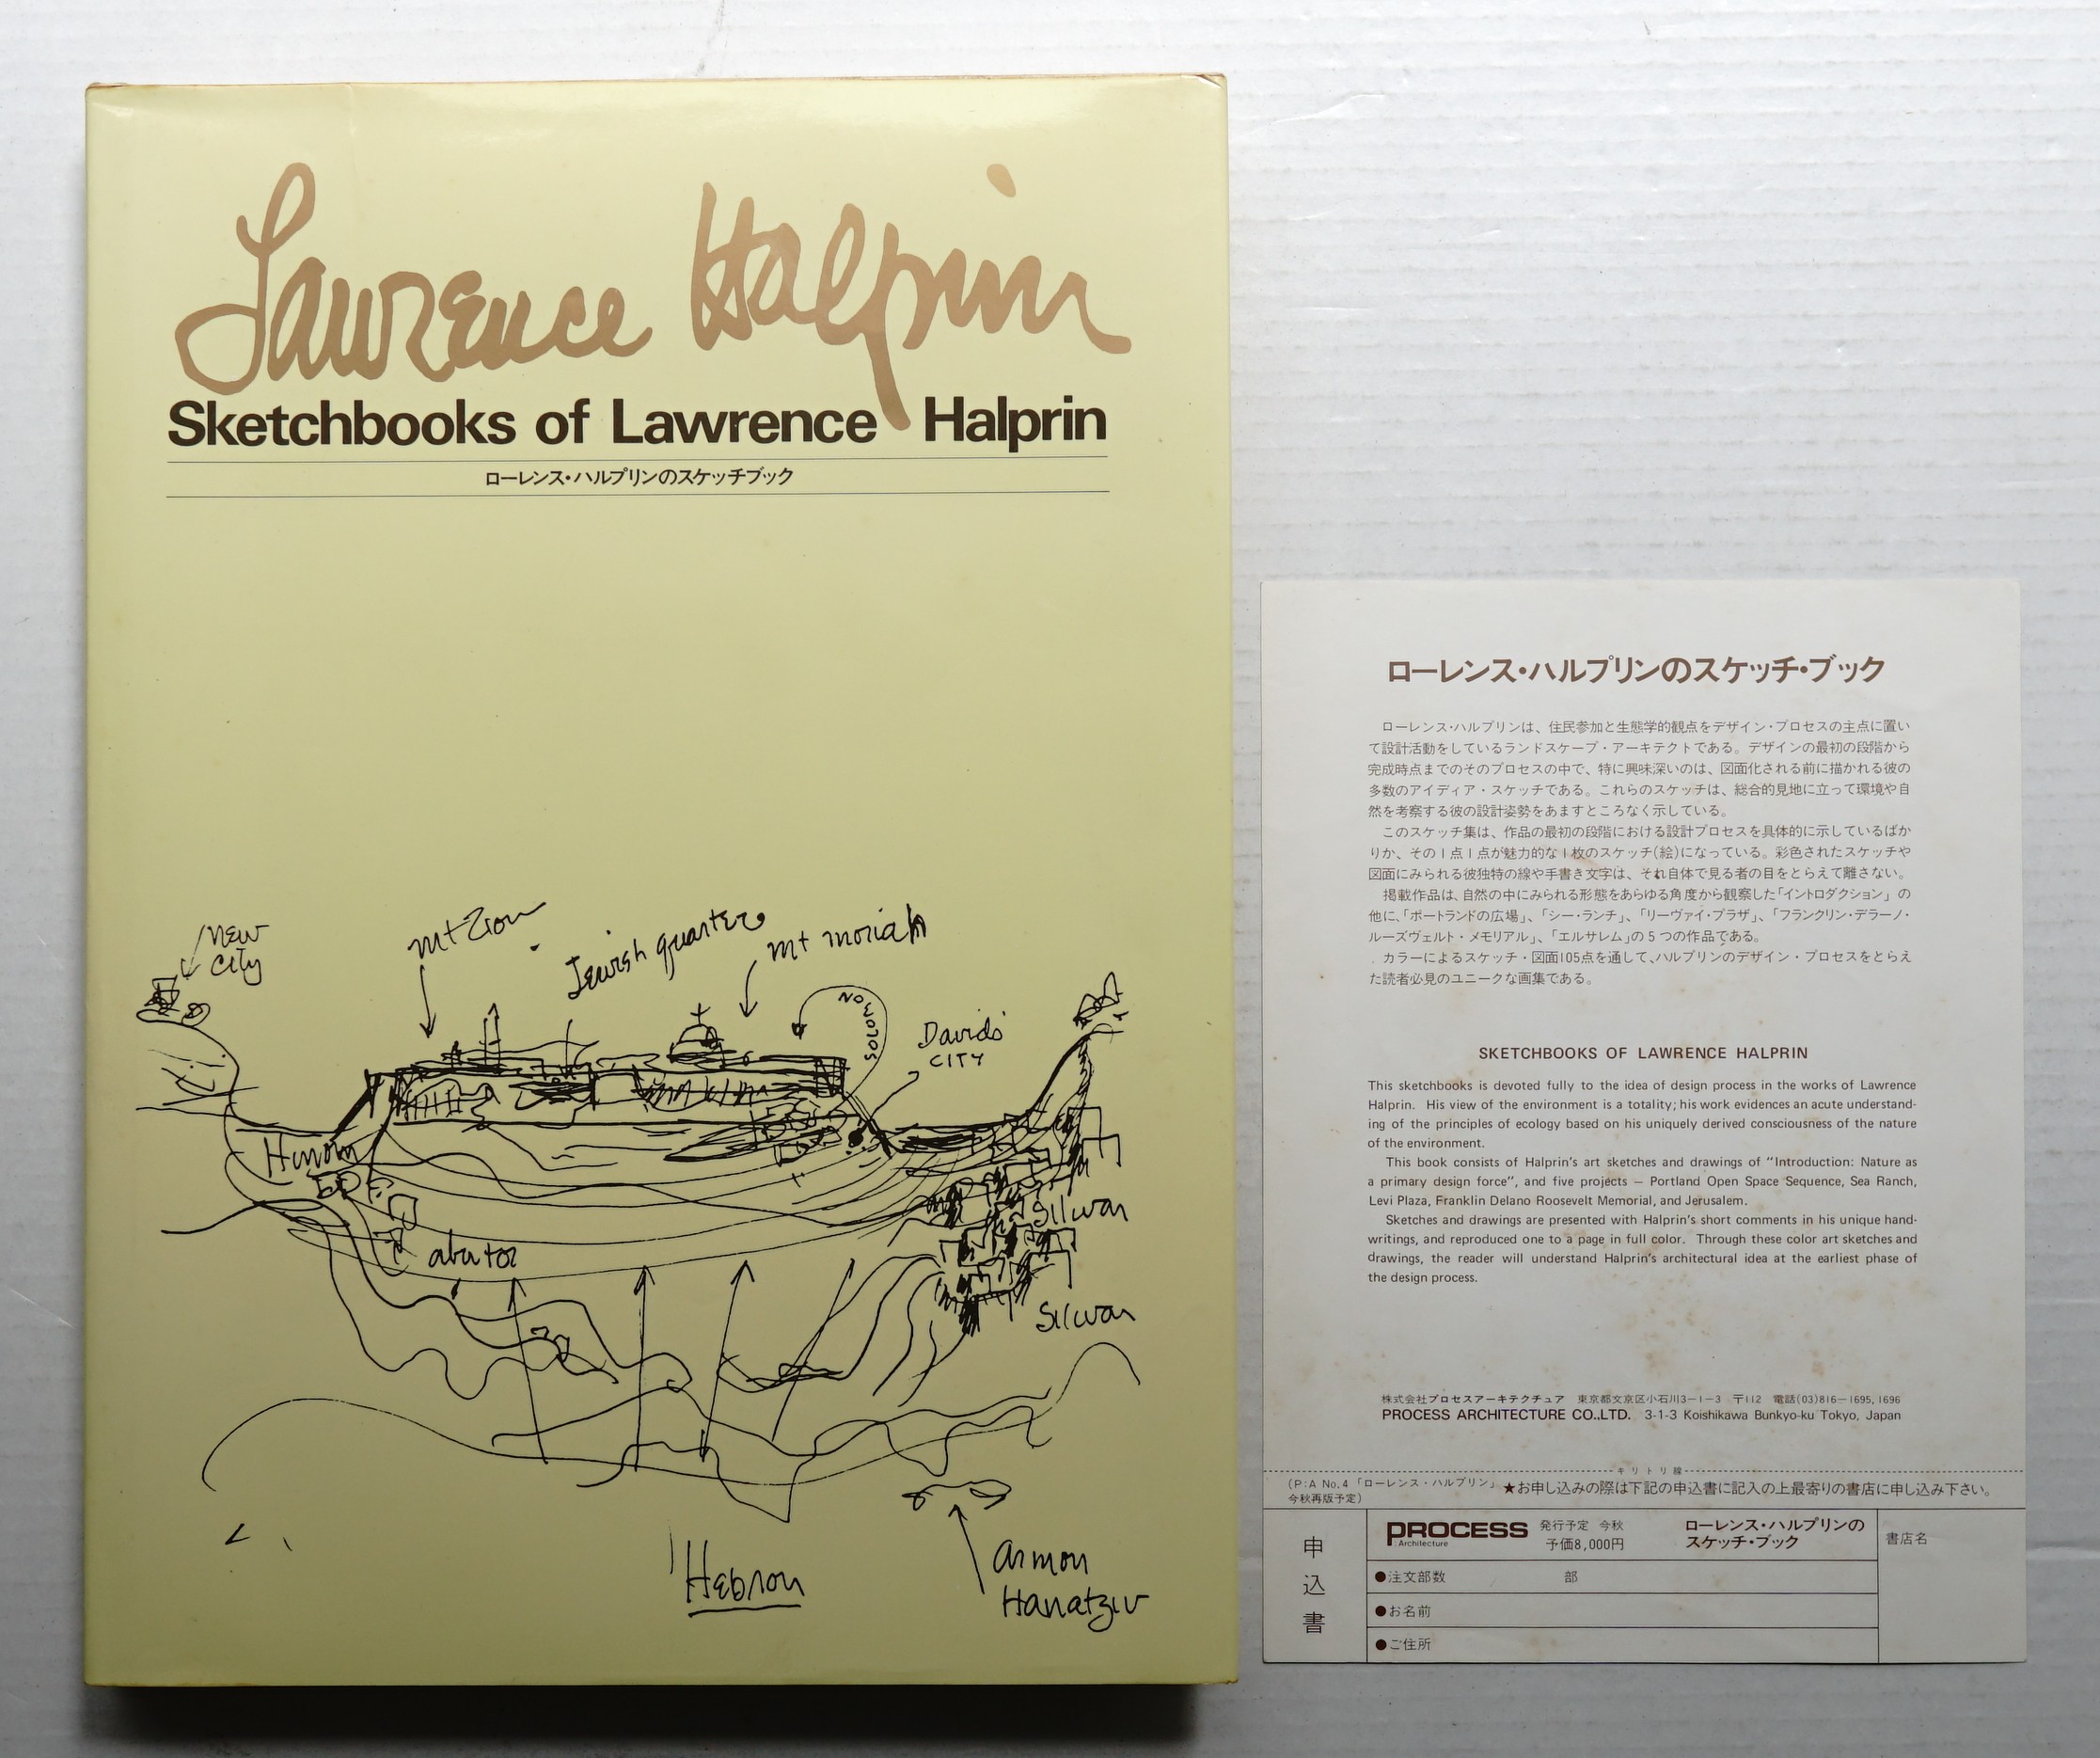 Lawrence Halprin
Sketchbooks of Lawrence Halprin
ローレンス・ハルプリンのスケッチブック
New
City
mt Zion
Jewish quarter
mt moriah
SOLOMON
Davids'
CITY
Hinnom
Silwan
abu tor
Silwan
Hebron
armon
Hanatziv
ローレンス・ハルプリンのスケッチ・ブック
ローレンス・ハルプリンは、住民参加と生態学的観点をデザイン・プロセスの主点に置い
て設計活動をしているランドスケープ・アーキテクトである。デザインの最初の段階から
完成時点までのそのプロセスの中で、特に興味深いのは、図面化される前に描かれる彼の
多数のアイディア・スケッチである。これらのスケッチは、総合的見地に立って環境や自
然を考察する彼の設計姿勢をあますところなく示している。
このスケッチ集は、作品の最初の段階における設計プロセスを具体的に示しているばか
りか、その1点1点が魅力的な1枚のスケッチ(絵)になっている。彩色されたスケッチや
図面にみられる彼独特の線や手書き文字は、それ自体で見る者の目をとらえて離さない。
掲載作品は、自然の中にみられる形態をあらゆる角度から観察した「イントロダクション」の
他に、「ポートランドの広場」、「シー・ランチ」、「リーヴァイ・プラザ」、「フランクリン・デラーノ・
ルーズヴェルト・メモリアル」、「エルサレム」の5つの作品である。
カラーによるスケッチ・図面105点を通して、ハルプリンのデザイン・プロセスをとらえ
た読者必見のユニークな画集である。
SKETCHBOOKS OF LAWRENCE HALPRIN
This sketchbooks is devoted fully to the idea of design process in the works of Lawrence
Halprin. His view of the environment is a totality; his work evidences an acute understand-
ing of the principles of ecology based on his uniquely derived consciousness of the nature
of the environment.
This book consists of Halprin's art sketches and drawings of "Introduction: Nature as
a primary design force", and five projects — Portland Open Space Sequence, Sea Ranch,
Levi Plaza, Franklin Delano Roosevelt Memorial, and Jerusalem.
Sketches and drawings are presented with Halprin's short comments in his unique hand-
writings, and reproduced one to a page in full color. Through these color art sketches and
drawings, the reader will understand Halprin's architectural idea at the earliest phase of
the design process.
株式会社プロセスアーキテクチュア 東京都文京区小石川3-1-3 〒112 電話(03)816-1695,1696
PROCESS ARCHITECTURE CO.,LTD. 3-1-3 Koishikawa Bunkyo-ku Tokyo, Japan
キリトリ線
(P:A No.4「ローレンス・ハルプリン」
今秋再版予定)
★お申し込みの際は下記の申込書に記入の上最寄りの書店に申し込み下さい。
申込書
PROCESS
: Architecture
発行予定 今秋
予価8,000円
ローレンス・ハルプリンの
スケッチ・ブック
書店名
●注文部数 部
●お名前
●ご住所